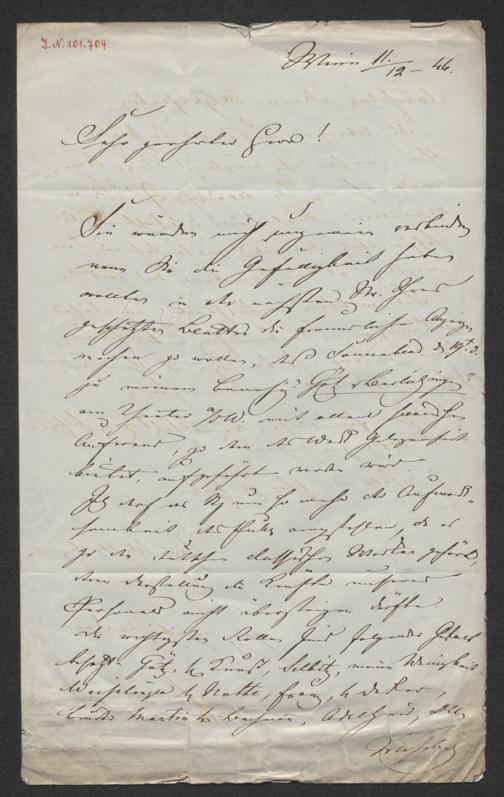 J. N. 101.704
Wien 11./12 – 46.
Sehr geehrter Herr!
Sie würden mich ungemein verbinden
wenn Sie die Gefälligkeit haben
wollten in der nächsten Nr. Ihres
geschätzten Blattes die freundliche Anzeige
machen zu wollen, daß Sonnabend d. 19t. d.
zu meinem Benefiz: Götz v Berlichingen
am Theater a/d W. mit allem
Aufwand, zu dem das Werk Gelegenheit
bietet, aufgeführt werden wird.
um so mehr der Aufmerk-
samkeit des empfehlen, da es
zu den deutschen classischen Werken gehört,
deren Darstellung die Kräfte unseres
Personals nicht übersteigen dürfte.
Die wichtigsten Rollen sind folgender
besetzt: Götz, H Kunst, Selbitz, meine Wenigkeit.
Weislingen H Franz, H
Bruder Martin H Adelheid, Dlle